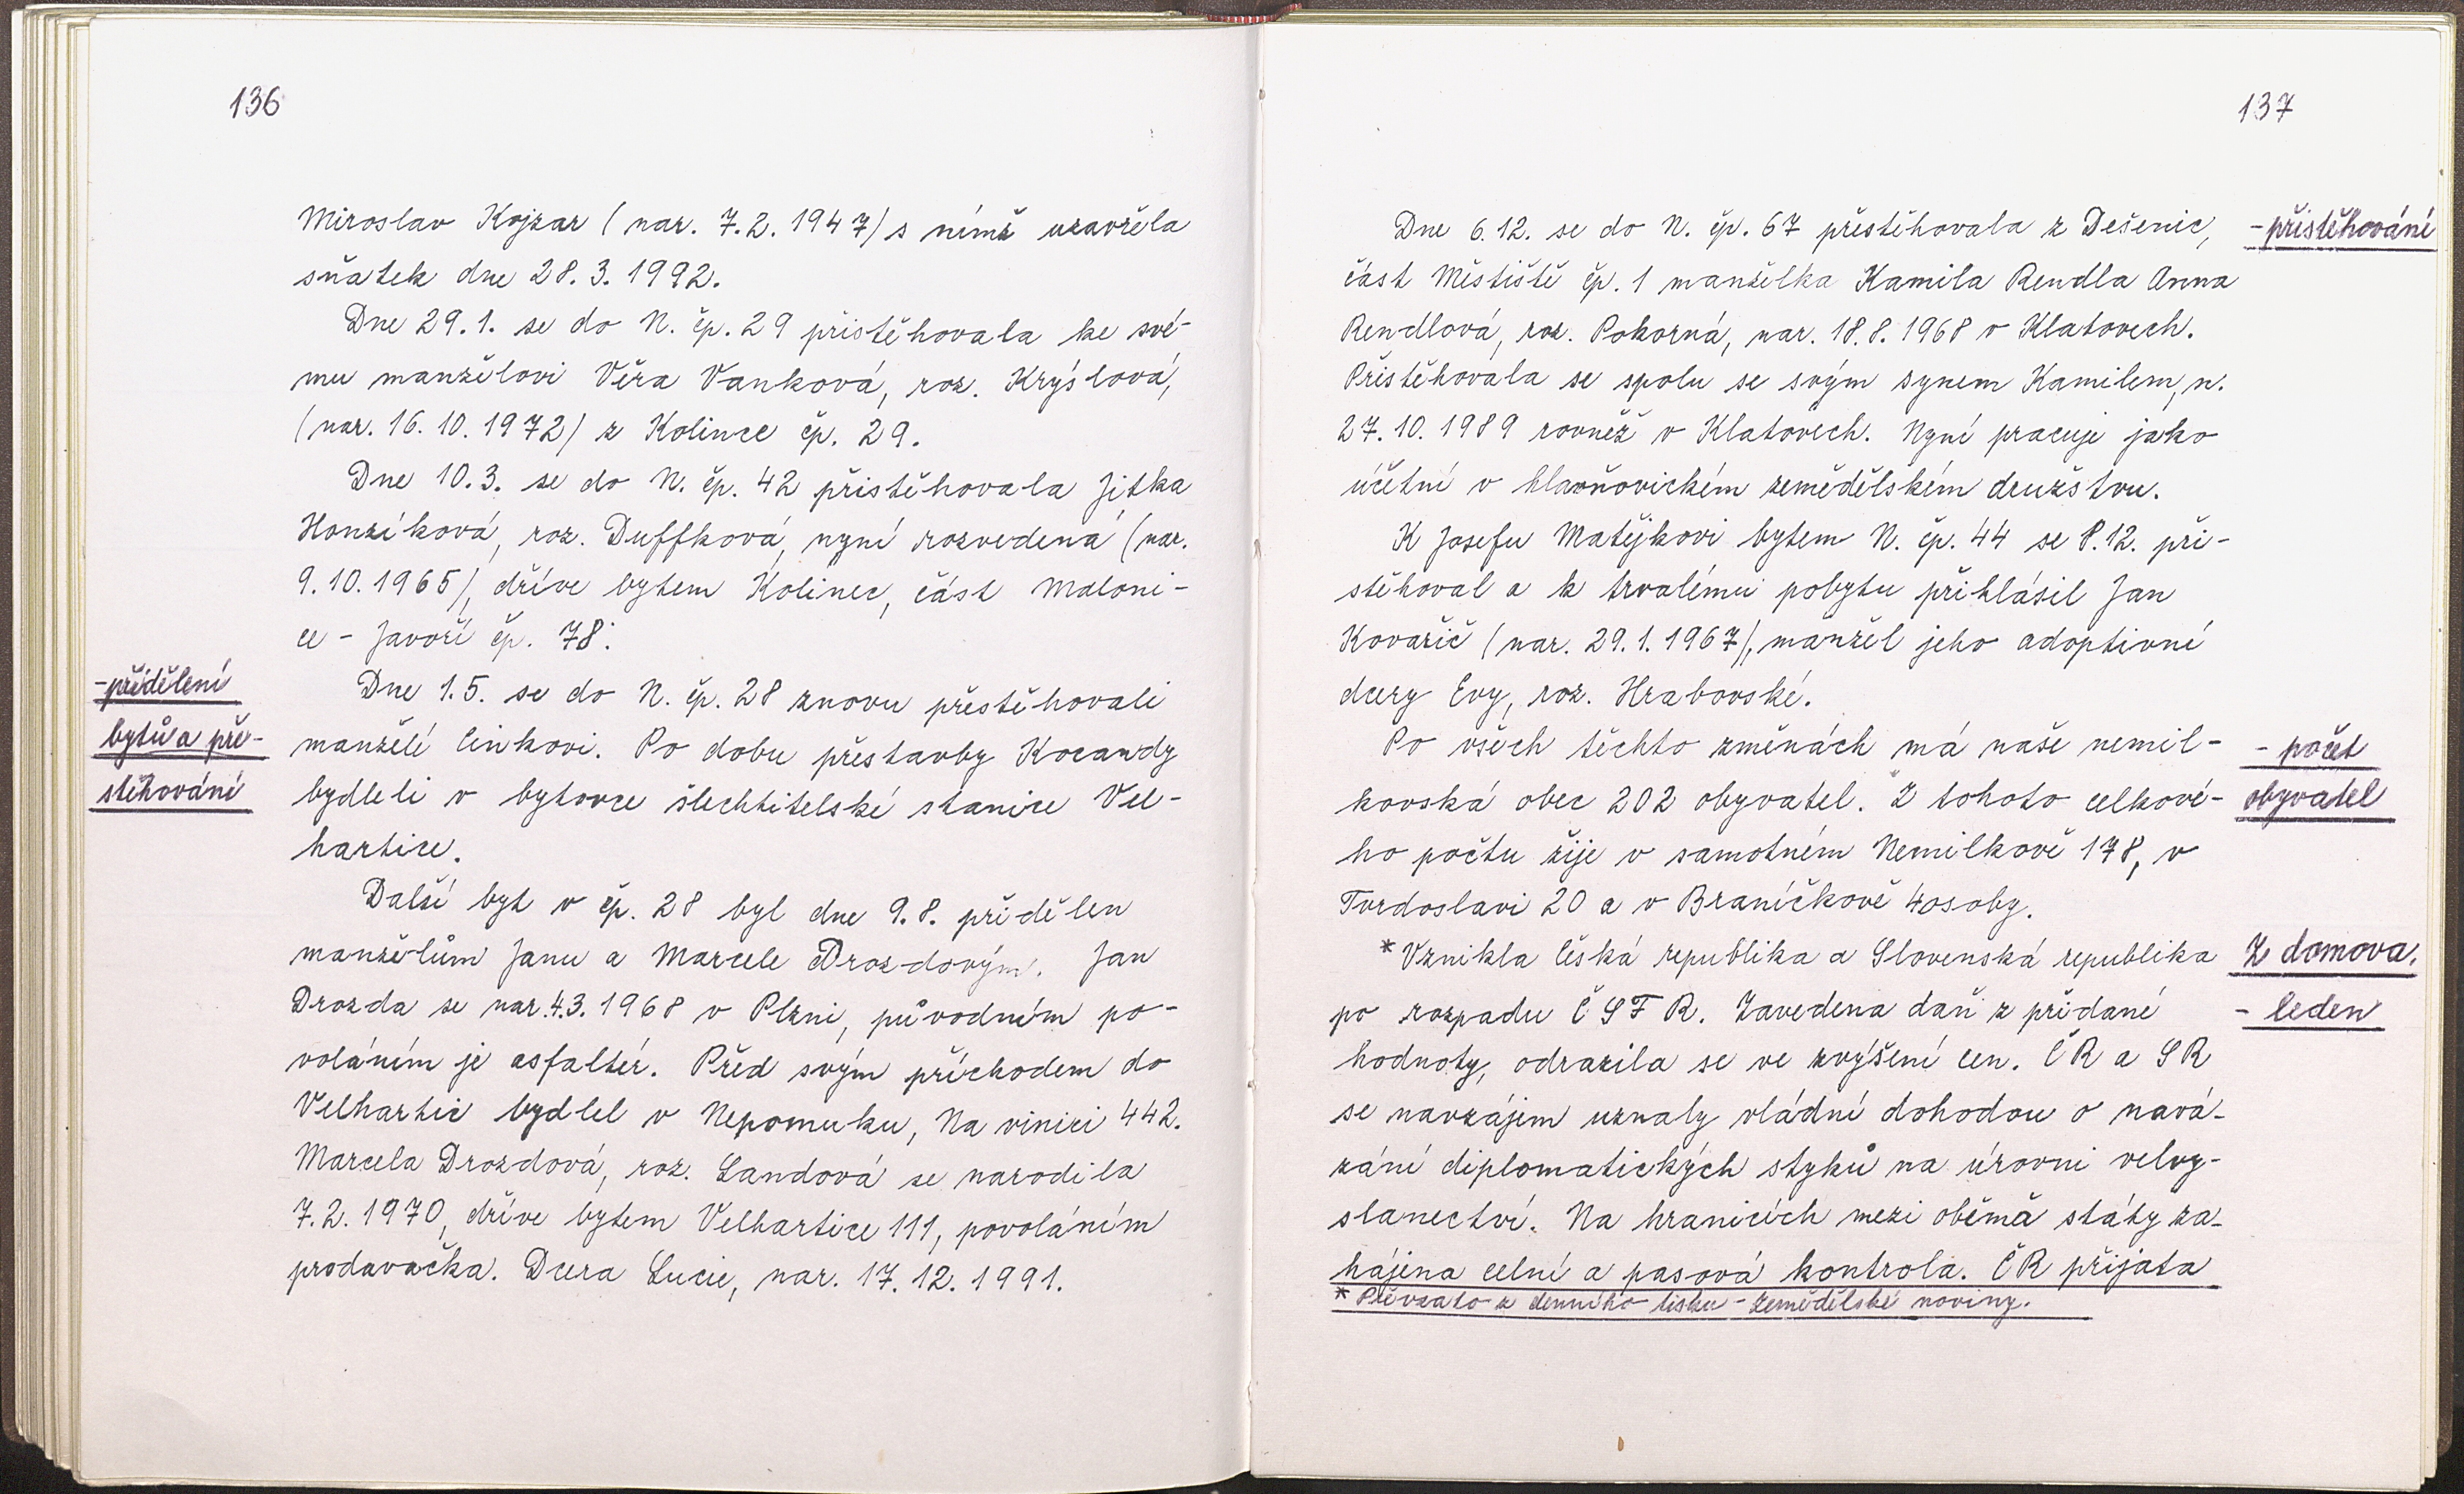 136
Miroslav Kojzar (nar. 7.2.1947) s nímž uzavřela
sňatek dne 28.3.1992.
Dne 29.1. se do N. čp. 29 přistěhovala ke své-
mu manželovi Věra Vanková, roz. Krýslová,
(nar. 16.10.1972) z Kolince čp. 29.
Dne 10.3. se do N. čp. 42 přistěhovala Jitka
Honzíková, roz. Duffková, nyní rozvedená (nar.
9.10.1965), dříve bytem Kolinec, část Maloni-
ce - Javoří čp. 78.
-přidělení
bytů a pře-
stěhování
Dne 1.5. se do N. čp. 28 znovu přestěhovali
manželé Cinkovi. Po dobu přestavby Kocandy
bydleli v bytovce šlechtitelské stanice Vel-
hartice.
Další byt v čp. 28 byl dne 9.8. přidělen
manželům Janu a Marcele Drozdovým. Jan
Drozda se nar. 4.3.1968 v Plzni, původním po-
voláním je asfaltér. Před svým příchodem do
Velhartic bydlel v Nepomuku, Na vinici 442.
Marcela Drozdová, roz. Landová se narodila
7.2.1970, dříve bytem Velhartice 111, povoláním
prodavačka. Dcera Lucie, nar. 17.12.1991.
137
Dne 6.12. se do N. čp. 67 přestěhovala z Dešenic,
-přistěhování
část Městiště čp. 1 manželka Kamila Rendla Anna
Rendlová, roz. Pokorná, nar. 18.8.1968 v Klatovech.
Přistěhovala se spolu se svým synem Kamilem, n.
27.10.1989 rovněž v Klatovech. Nyní pracuje jako
účetní v hlavňovickém zemědělském družstvu.
K Josefu Matějkovi bytem N. čp. 44 se 8.12. při-
stěhoval a k trvalému pobytu přihlásil Jan
Kovařič (nar. 29.1.1967), manžel jeho adoptivní
dcery Evy, roz. Hrabovské.
Po všech těchto změnách má naše nemil-
- počet
kovská obec 202 obyvatel. Z tohoto celkové-
obyvatel
ho počtu žije v samotném Nemilkově 178, v
Tvrdoslavi 20 a v Braníčkově 4 osoby.
*Vznikla Česká republika a Slovenská republika
Z domova.
po rozpadu ČSFR. Zavedena daň z přidané
- leden
hodnoty, odrazila se ve zvýšení cen. ČR a SR
se navzájem uznaly vládní dohodou o navá-
zání diplomatických styků na úrovni velvy-
slanectví. Na hranicích mezi oběma státy za-
hájena celní a pasová kontrola. ČR přijata
* Převzato z denního tisku - Zemědělské noviny.